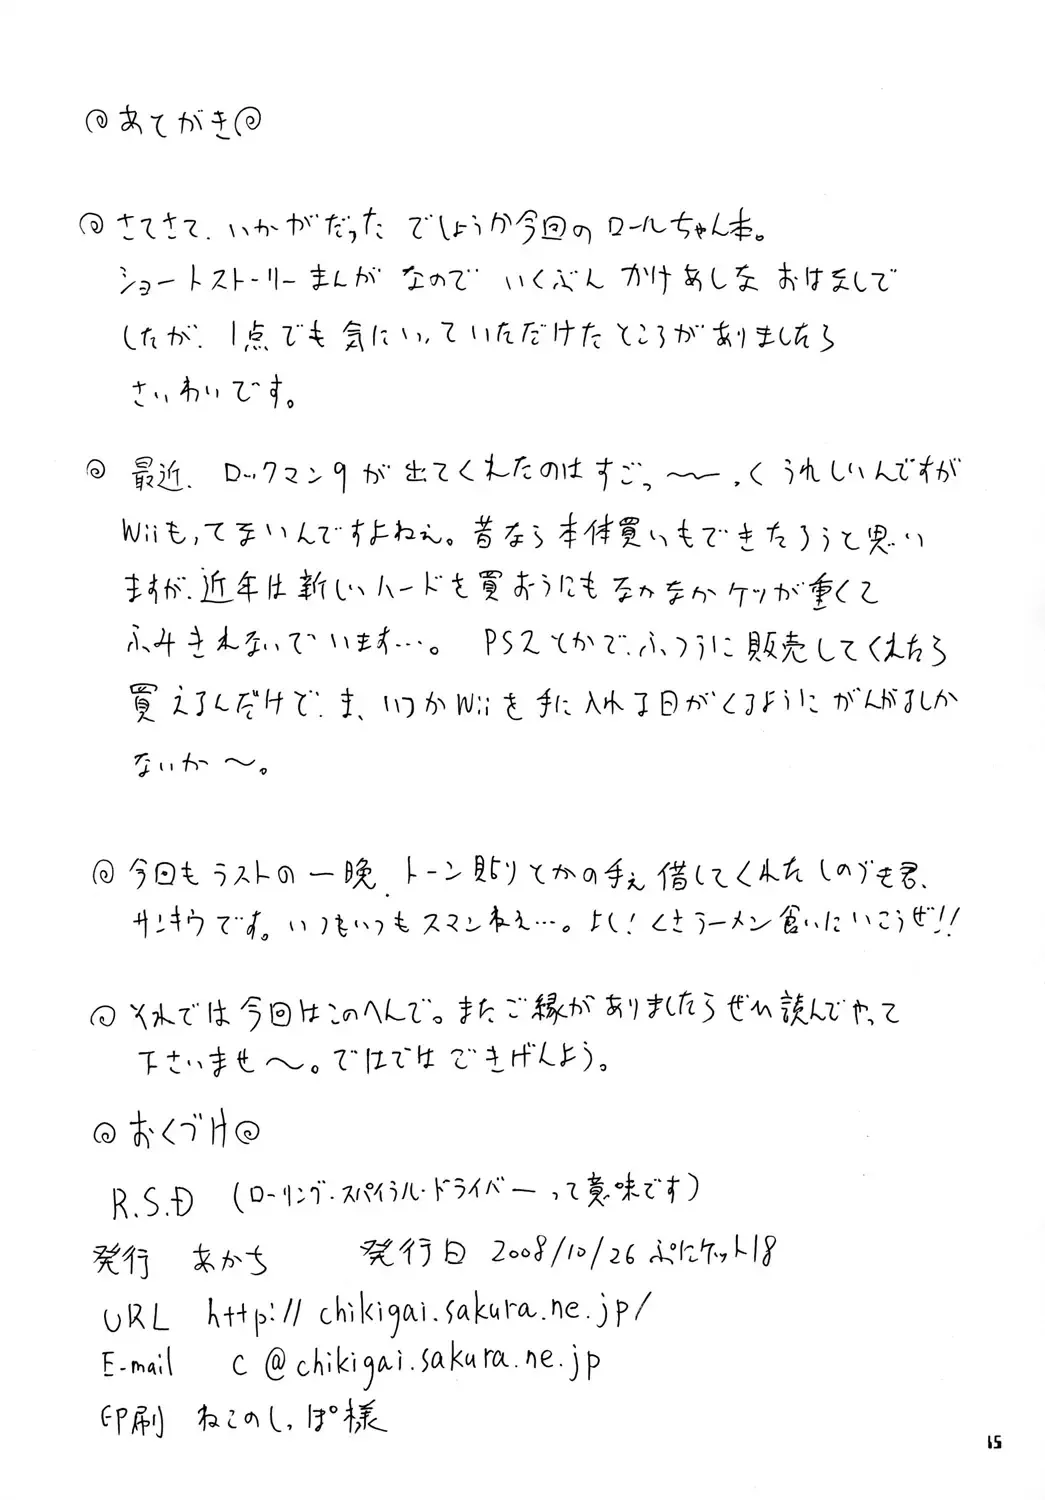 あとがき
さてさて、いかがだった でしょうか今回の ロールちゃん本。
ショートストーリーまんが なので いくぶん かけあしな おはなしで
したが、1点でも 気にいっていただけた ところがありましたら
さいわいです。
最近、ロックマン9が 出てくれたのは すごっ〜〜っく うれしいんですが
Wiiもってないんですよねぇ。昔なら本体買いもできたろうと思い
ますが、近年は新しいハードを買おうにもなかなかケツが重くて
ふみきれないでいます…。 PS2とかで、ふつうに販売してくれたら
買えるんだけど、ま、いつかWiiを手に入れる日がくるようにがんがるしか
ないか〜。
今回もラストの一晩、トーン貼りとかの手え借してくれたしのづも君、
サンキウです。いつもいつもスマンねえ…。よし!くさラーメン食いにいこうぜ!!
それでは今回はこのへんで。またご縁がありましたらぜひ読んでやって
下さいませ〜。ではでは ごきげんよう。
おくづけ
R.S.D (ローリング・スパイラル・ドライバーって意味です)
発行 あかち 発行日 2008/10/26 ぷにケット18
URL http://chikigai.sakura.ne.jp/
E-mail c@chikigai.sakura.ne.jp
印刷 ねこのしっぽ様
15